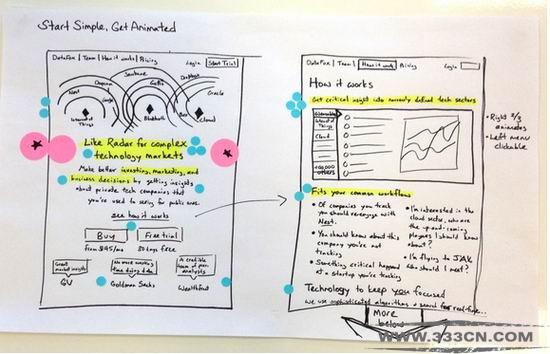 Start Simple, Get Animated
DataFox | Team | How it works | Pricing
Login
Start Trial
Sunshine
Dropcam
GoPro
Dropbox
Nest
Box
Oracle
Internet of
Things
Bluetooth
Cloud
Like Radar for complex
technology markets
Make better investing, marketing, and
business decisions by getting insights
about private tech companies that
you're used to seeing for public ones.
see how it works
Buy
Free trial
from $45/mo
30 days free
Great
market insights
GV
No more working
Goldman Sachs
A credible
analysts
Wealthfront
DataFox | Team | How it works | Pricing
Login
How it works
Get critical insight into narrowly defined tech sectors
Wearables
Internet of
Things
Cloud
Right 2/3
animates
Left menu
clickable
Fits your common workflows
Of companies you track
you should re-engage with
Nest.
You should know about this
company you're not
tracking
Something critical happened
at a startup you're tracking
I'm interested in the
cloud sector, who are
the up-and-coming
players I should know
about?
I'm flying to JFK.
Who should I meet?
Technology to keep you focused
We use sophisticated algorithms + search for real-time...
More
below
www.333cn.com